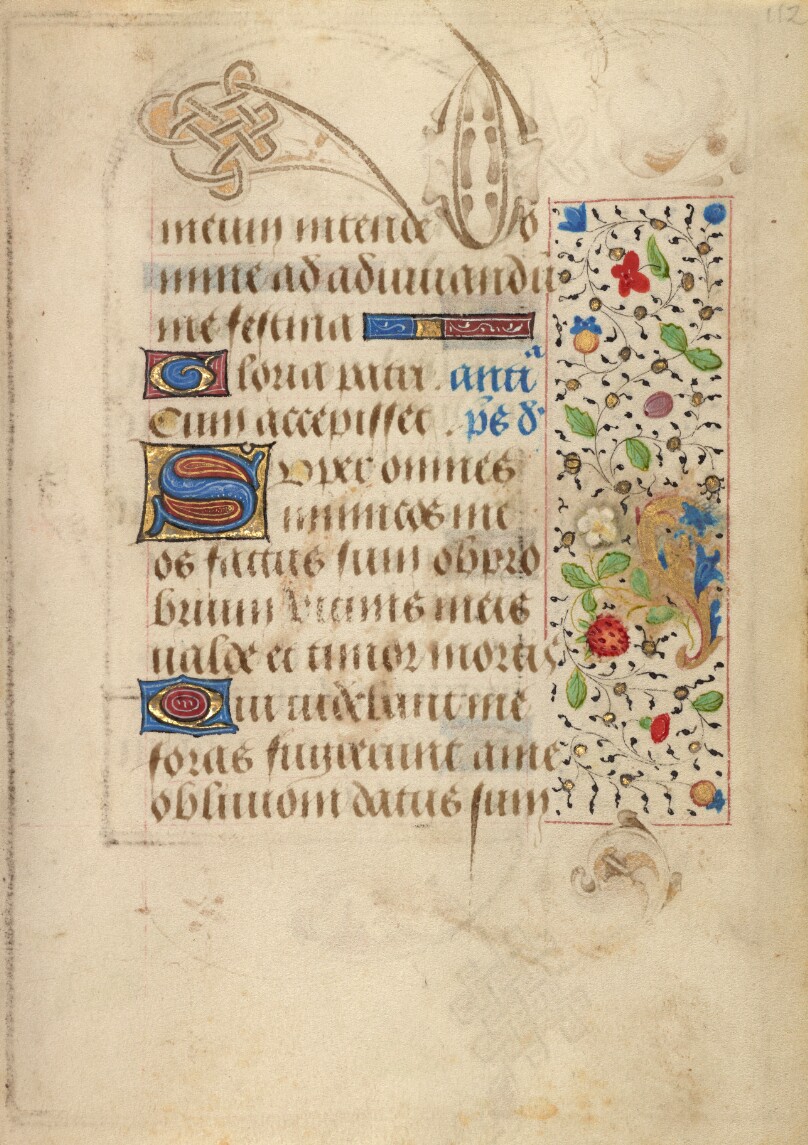 112
meum intende Do
mine ad adiuuandū
me festina
Gloria patri . antiᵃ
Cum accepisset . p̄s d̄
Super omnes
inimicos me
os factus sum obpro
brium vicinis meis
ualde et timor mortis
Qui uidebant me
foras fugierunt a me
obliuioni datus sum